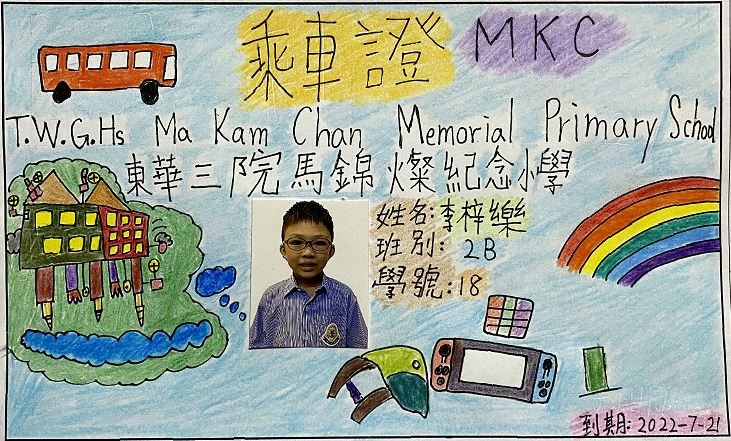 乘車證 MKC
T.W.G.Hs Ma Kam Chan Memorial Primary School
東華三院馬錦燦紀念小學
姓名:李梓樂
班別: 2B
學號:18
到期:2022-7-21